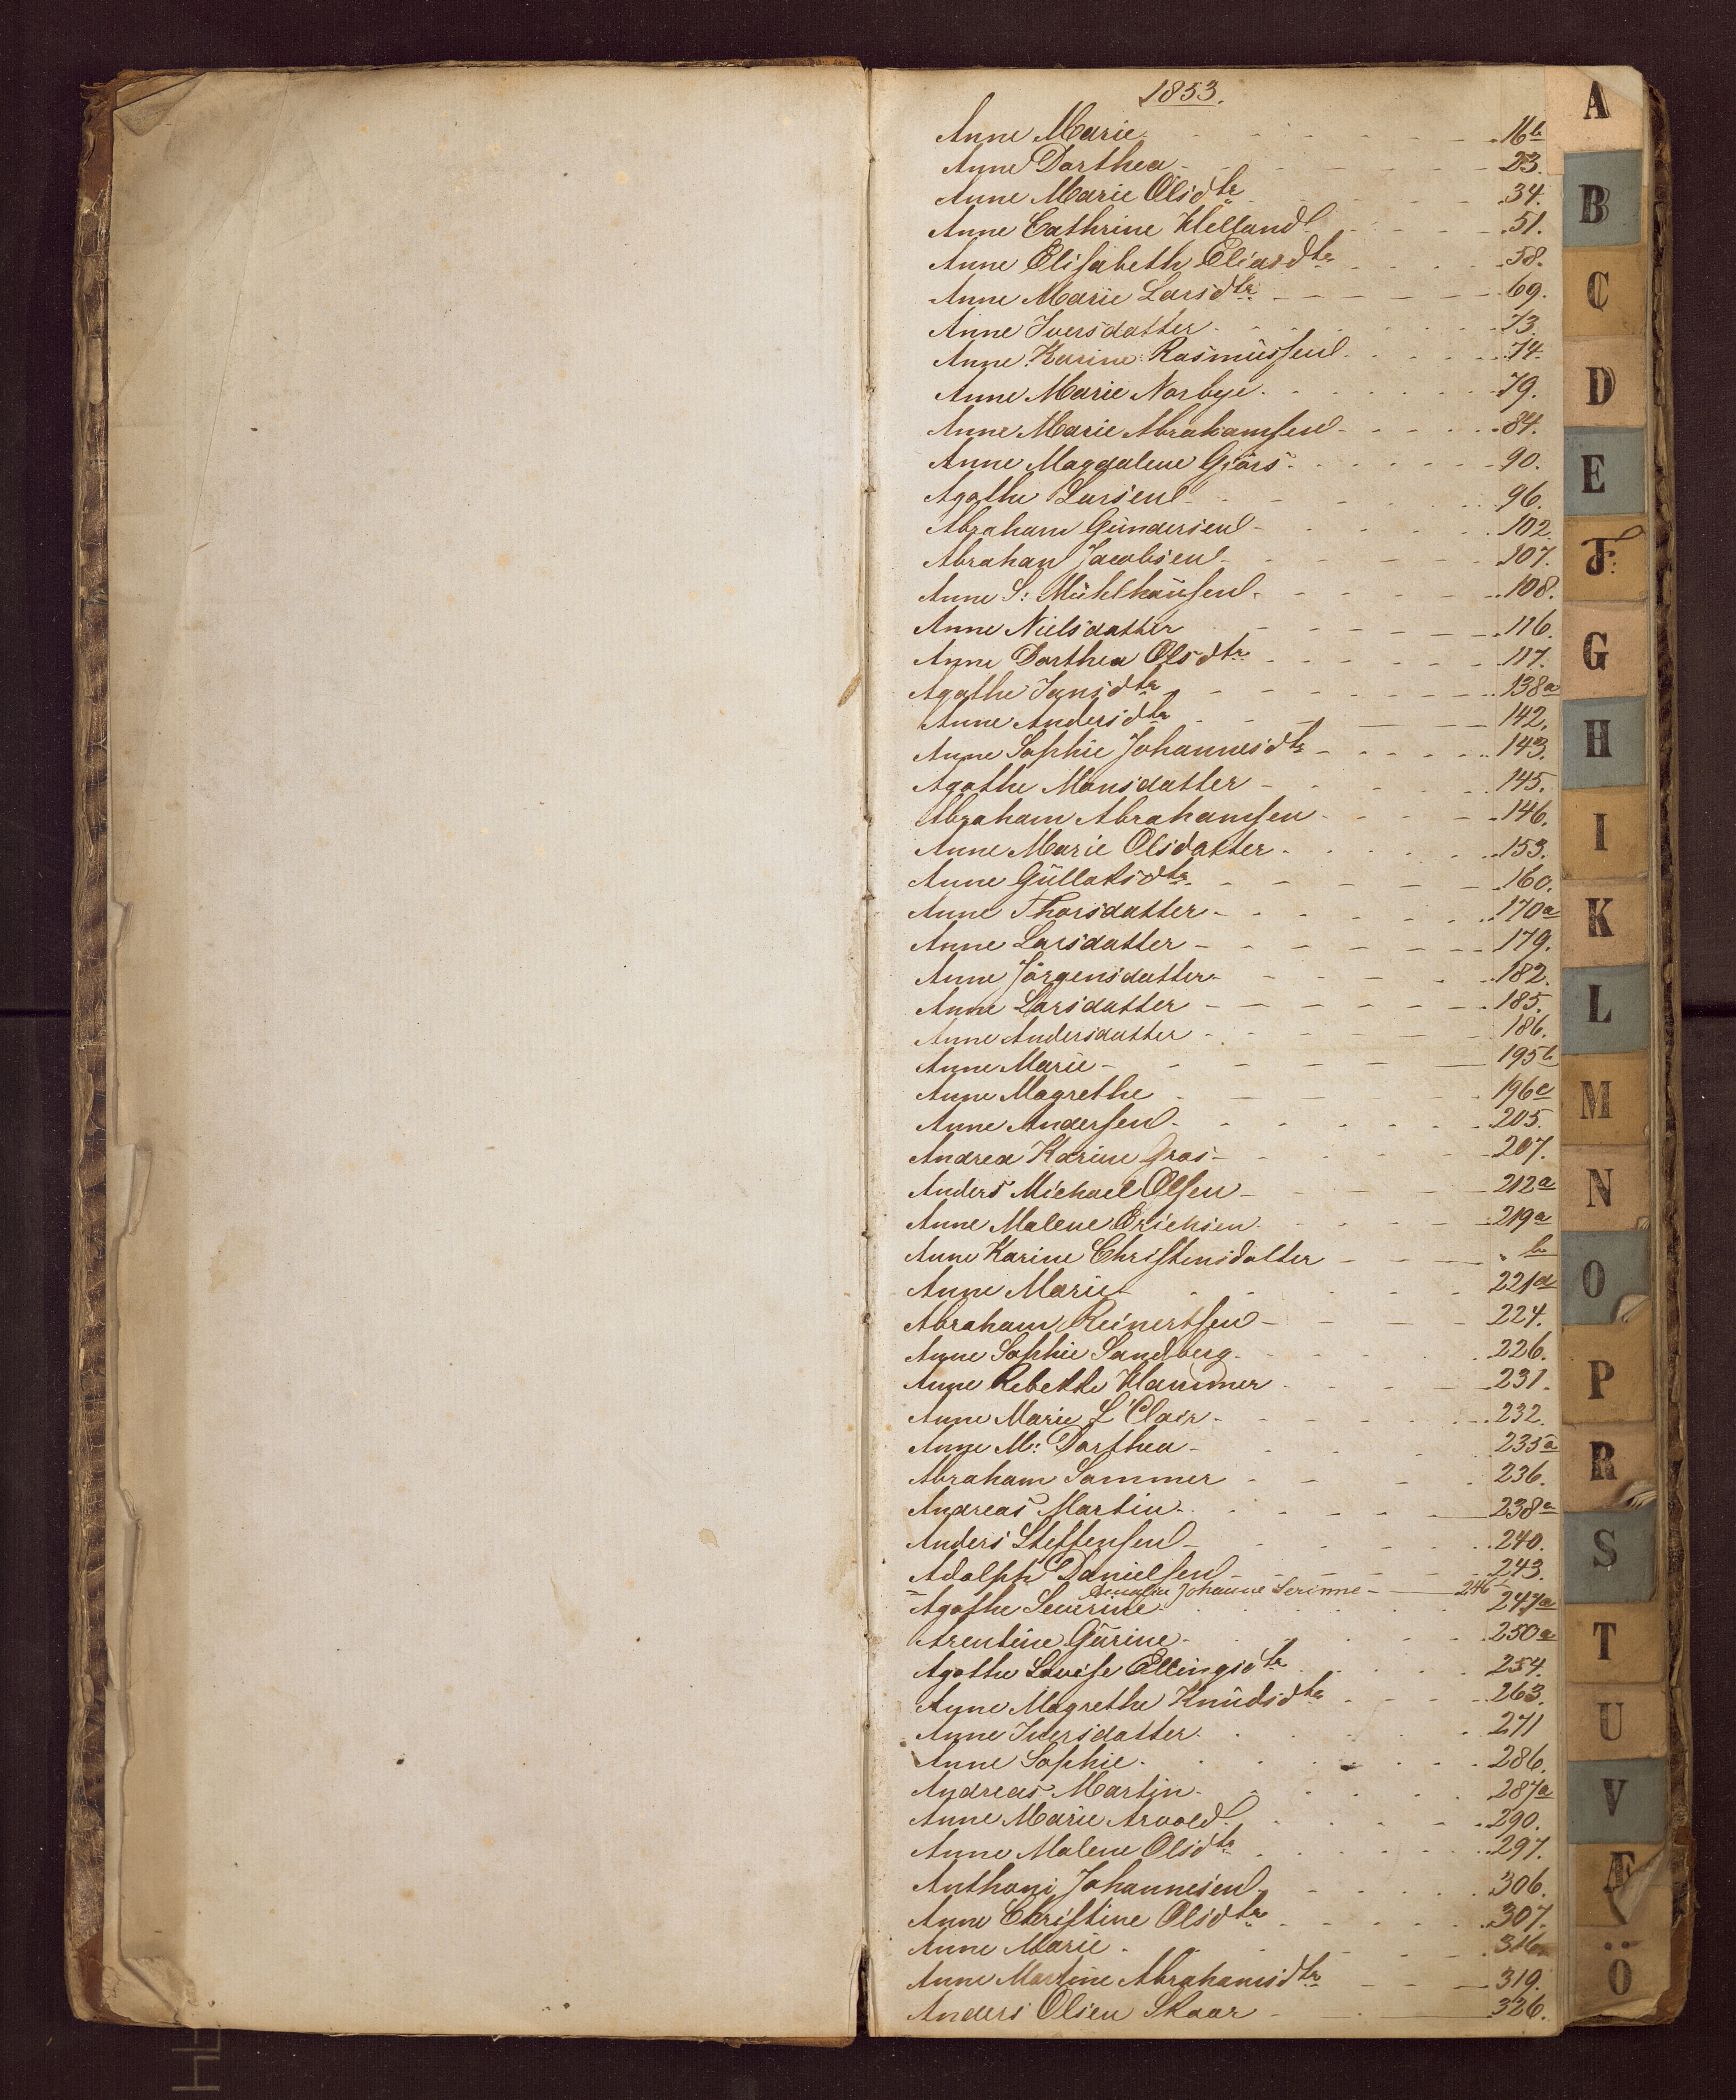 1853.
Anne Marie - - - - - - 16b
Anne Dorthea - - - - - - 23.
Anne Marie Olsdtr - - - - 34.
Anne Cathrine Helland - - - - 51.
Anne Elisabeth Eliasdtr - - - - 58.
Anne Marie Larsdtr - - - - - - 69.
Anne Iversdatter - - - - - - 73.
Anne Karine Rasmüssen - - - - 74.
Anne Marie Norbye - - - - - 79.
Anne Marie Abrahamsen - - - - - 84.
Anne Magdalene Gjörs - - - - - 90.
Agathe Larsen - - - - - 96.
Abraham Gündersen - - - - - 102.
Abraham Jacobsen - - - - - 107.
Anne S: Mühlhaüsen - - - - - 108.
Anne Nielsdatter - - - - - - 116.
Anne Dorthea Olsdtr - - - - - - 117.
Agathe Jansdtr - - - - - - 138a
Anne Andersdtr - - - - 142.
Anne Sophie Johannesdtr - - - - - 143.
Agathe Monsdatter - - - - - 145.
Abraham Abrahamsen - - - - 146.
Anne Marie Olsdatter - - - - - 153.
Anne Güllaksdtr - - - - - - 160.
Anne Thorsdatter - - - - - - 170a
Anne Larsdatter - - - - - - - 179.
Anne Jörgensdatter - - - - - - 182.
Anne Larsdatter - - - - - - - 185.
Anne Andersdatter - - - - - - 186.
Anne Marie - - - - - - 195b
Anne Magrethe - - - - - 196c
Anne Andersen - - - - - - - 205.
Andrea Karine Gras - - - - - 207.
Anders Michael Olsen - - - - - 212a
Anne Malene Erichsen - - - - - 219a
Anne Karine Christensdatter - - - " b
Anne Marie - - - - - 221d
Abraham Reinertsen - - - - - 224.
Anne Sophie Sandberg - - - - - 226.
Anne Rebekke Hammer - - - - 231.
Anne Marie L'Clair - - - - - - 232.
Anne M: Dorthea - - - - 235a
Abraham Sammer - - - - 236.
Andreas Martin - - - - - - 238a
Anders Steffensen - - - - - - 240.
Adolph Danielsen - - - - - - 243.
Johanne Serinne - - 246
Agathe Severine - - - - - 247a
Arentine Gürine - - - - - - 250a
Agathe Lovise Ellingsdtr - - - - 254.
Anne Magrethe Knüdsdtr - - - - 263.
Anne Iversdatter - - - - - - 271
Anne Sophie - - - - - - 286.
Andreas Martin - - - - - 287a
Anne Marie Arvold - - - - - 290.
Anne Malene Olsdtr - - - - - - 297.
Anthoni Johannesen - - - - - 306.
Anne Christine Olsdtr - - - - - 307.
Anne Marie - - - - - 316
Anne Martine Abrahamsdtr - - - 319.
Anders Olsen Skaar - - - 326.
A
B
C
D
E
F:
G
H
I
K
L
M
N
O
P
R
S
T
U
V
Æ
Ö